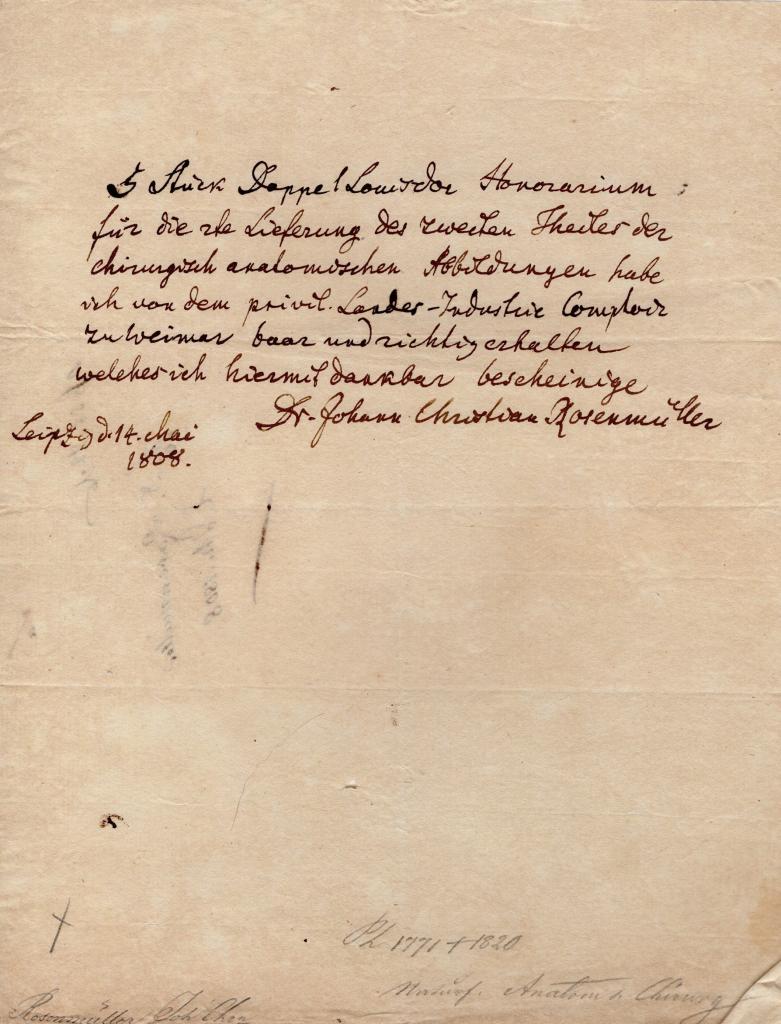 5 Stück Doppel Louisdor Honorarium
für die 2te Lieferung des zweiten Theiles der
chirurgisch anatomischen Abbildungen habe
ich von dem privil. Landes-Industrie Comptoir
zu Weimar baar und richtig erhalten
welches ich hiermit dankbar bescheinige
Dr. Johann Christian Rosenmüller
Leipzig d. 14. Mai
1808.
1771 + 1820
Naturf. Anatom & Chirurg
Rosenmüller Joh Chr